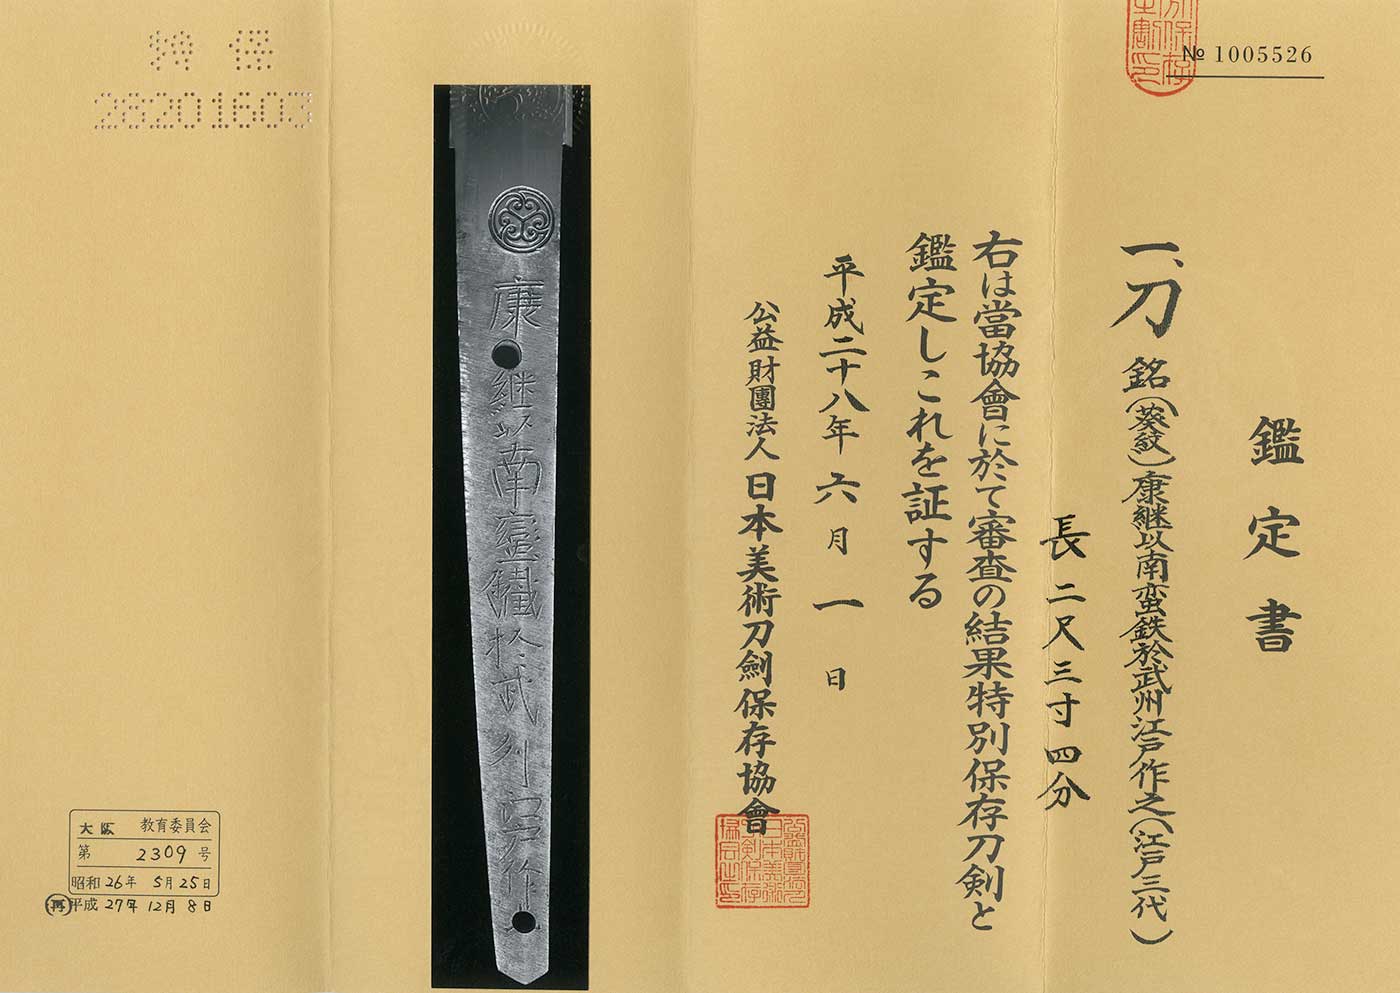 № 1005526
鑑定書
一、刀 銘(葵紋)康継以南蛮鉄於武州江戸作之(江戸三代)
長二尺三寸四分
右は當協會に於て審査の結果特別保存刀剣と
鑑定しこれを証する
平成二十八年六月一日
公益財團法人日本美術刀劍保存協會
康継以南蠻鐵於武列江戸作
特保
28201603
大阪 教育委員会
第 2309 号
昭和26年 5月25日
再 平成 27年 12月 8日